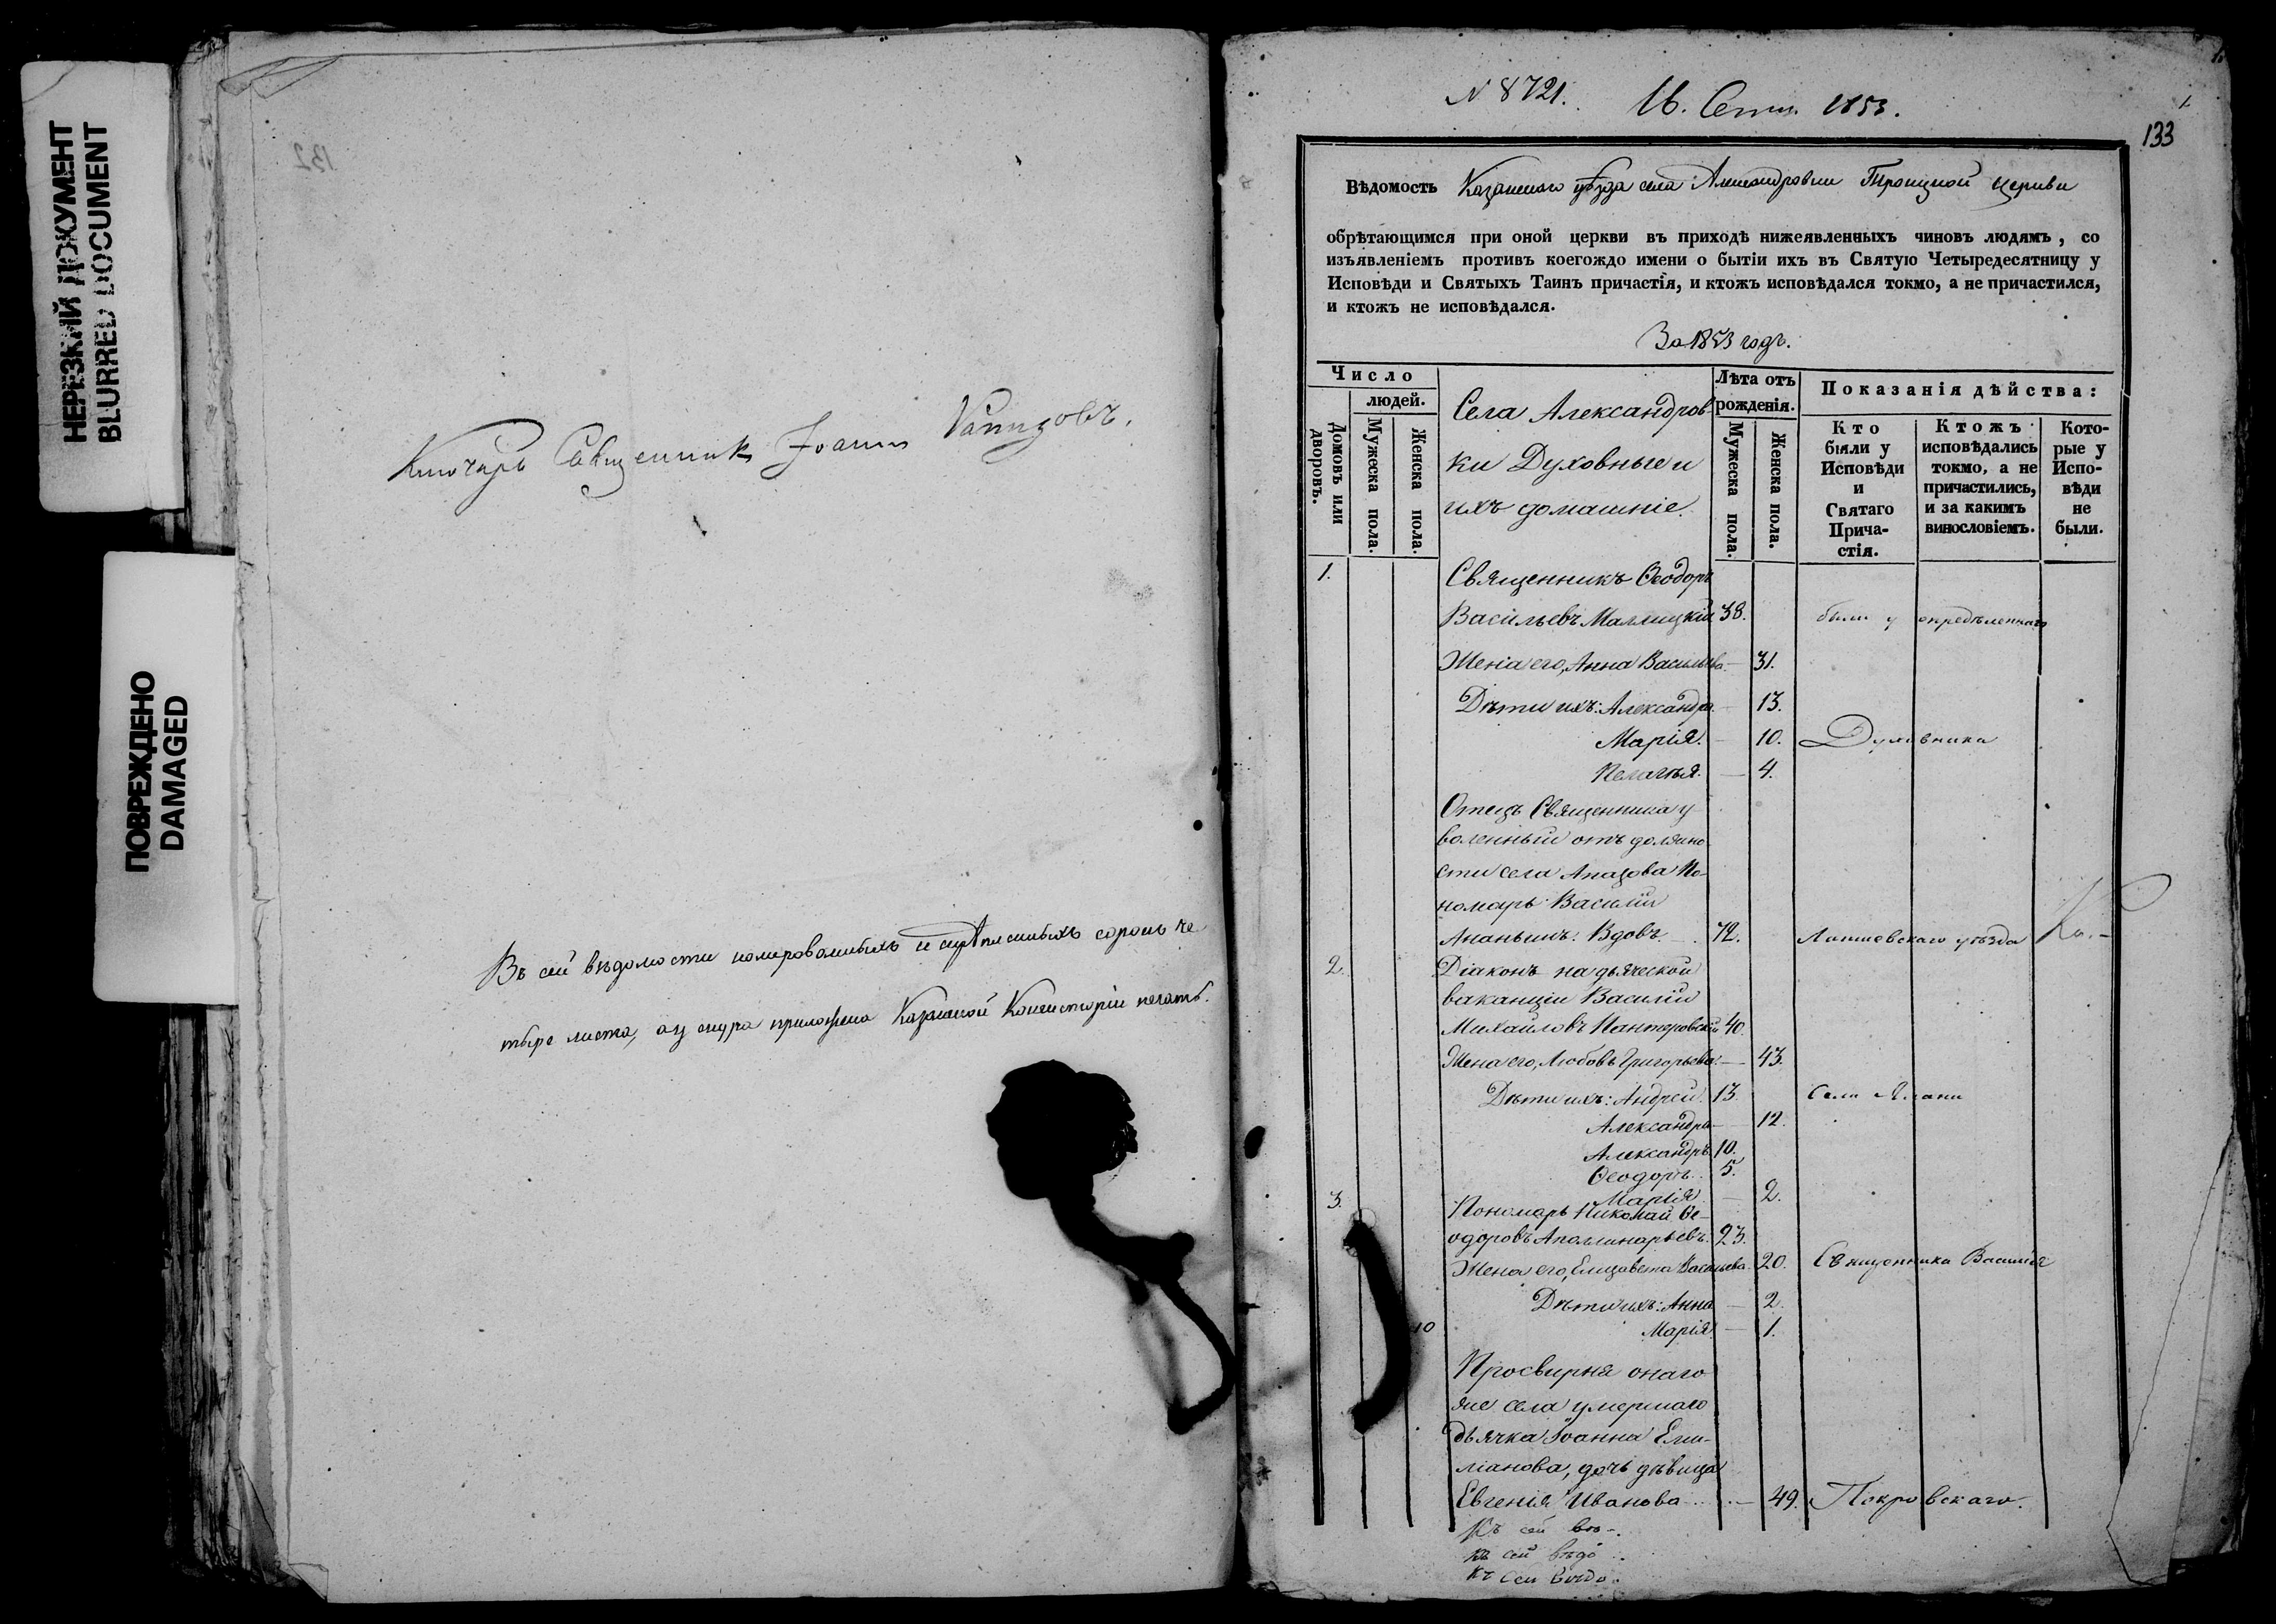 НЕРЕЗКИЙ ДОКУМЕНТ
BLURRED DOCUMENT
ПОВРЕЖДЕНО
DAMAGED
132
Ключарь Священник Иоанн
Въ сей вѣдомости номерованныхъ и скрѣпленныхъ сорокъ че
тыре листа, а у снура приложена Казанской Консисторіи печать.
N 8721.
16. Сент. 1853.
1
133
Вѣдомость Казанскаго уѣзда села Александровки Троицкой церкви
обрѣтающимся при оной церкви въ приходѣ нижеявленныхъ чиновъ людямъ, со
изъявленіемъ противъ коегождо имени о бытіи ихъ въ Святую Четыредесятницу у
Исповѣди и Святыхъ Таинъ причастія, и ктожъ исповѣдался токмо, а не причастился,
и ктожъ не исповѣдался.
За 1853 годъ.
Число
людей.
Домовъ или дворовъ.
Мужеска пола.
Женска пола.
Села Александров
ки Духовные и
ихъ домашніе.
Лѣта отъ
рожденія.
Мужеска пола.
Женска пола.
Показанія дѣйства:
Кто
были у
Исповѣди
и
Святаго
Прича-
стія.
Ктожъ
исповѣдались
токмо, а не
причастились,
и за какимъ
винословіемъ.
Кото-
рые у
Испо-
вѣди
не
были.
1. Священникъ Ѳеодоръ
Васильевъ Малицкій 38. были у опредѣленнаго
Жена его, Анна Васильева — 31.
Дѣти ихъ: Александра — 13.
Марія. — 10. Духовника
Пелагѣя. — 4.
Отецъ Священника у
воленный отъ должно
сти села Апазова По-
номарь Василій
Ананьинъ. Вдовъ. 72. Лаишевскаго уѣзда
2. Діаконъ на дьяческой
ваканціи Василій
Михайловъ Пантеровскій 40.
Жена его, Любовь Григорьева — 43.
Дѣти ихъ: Андрей. 13. Села
Александра — 12.
Александръ. 10.
Ѳеодоръ. 5.
Марія — 2.
3. Пономарь Николай Ѳе-
одоровъ Аполлинарьевъ. 23.
Жена его, Елизавета Васильева. 20. Священника Василія
Дѣти ихъ: Анна — 2.
10 Марія — 1.
Просвирня онаго
же села умершаго
дьячка Іоанна Еми-
ліанова, дочь дѣвица
Евгенія Иванова — 49. Покровскаго.
Къ сей вѣ-
къ сей вѣдо
къ сей вѣдо.